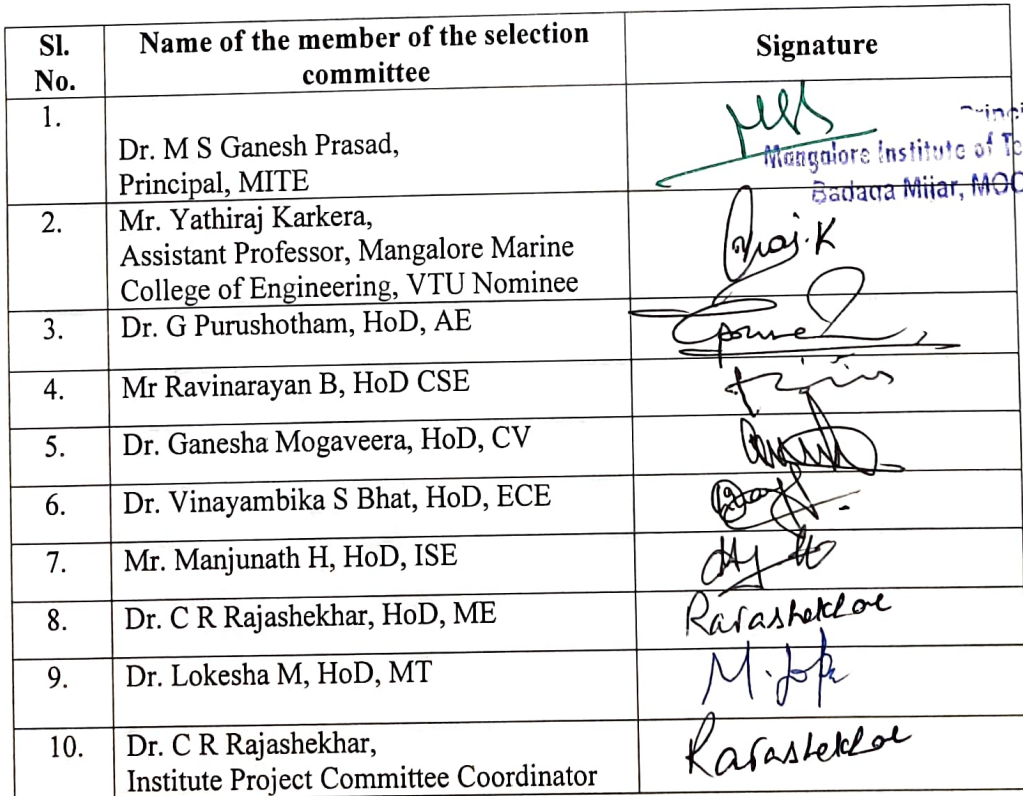 Sl. No. Name of the member of the selection committee Signature
1. Dr. M S Ganesh Prasad,
Principal, MITE
Mangalore Institute of
Badaga Mijar,
2. Mr. Yathiraj Karkera,
Assistant Professor, Mangalore Marine
College of Engineering, VTU Nominee
3. Dr. G Purushotham, HoD, AE
4. Mr Ravinarayan B, HoD CSE
5. Dr. Ganesha Mogaveera, HoD, CV
6. Dr. Vinayambika S Bhat, HoD, ECE
7. Mr. Manjunath H, HoD, ISE
8. Dr. C R Rajashekhar, HoD, ME
9. Dr. Lokesha M, HoD, MT
10. Dr. C R Rajashekhar,
Institute Project Committee Coordinator